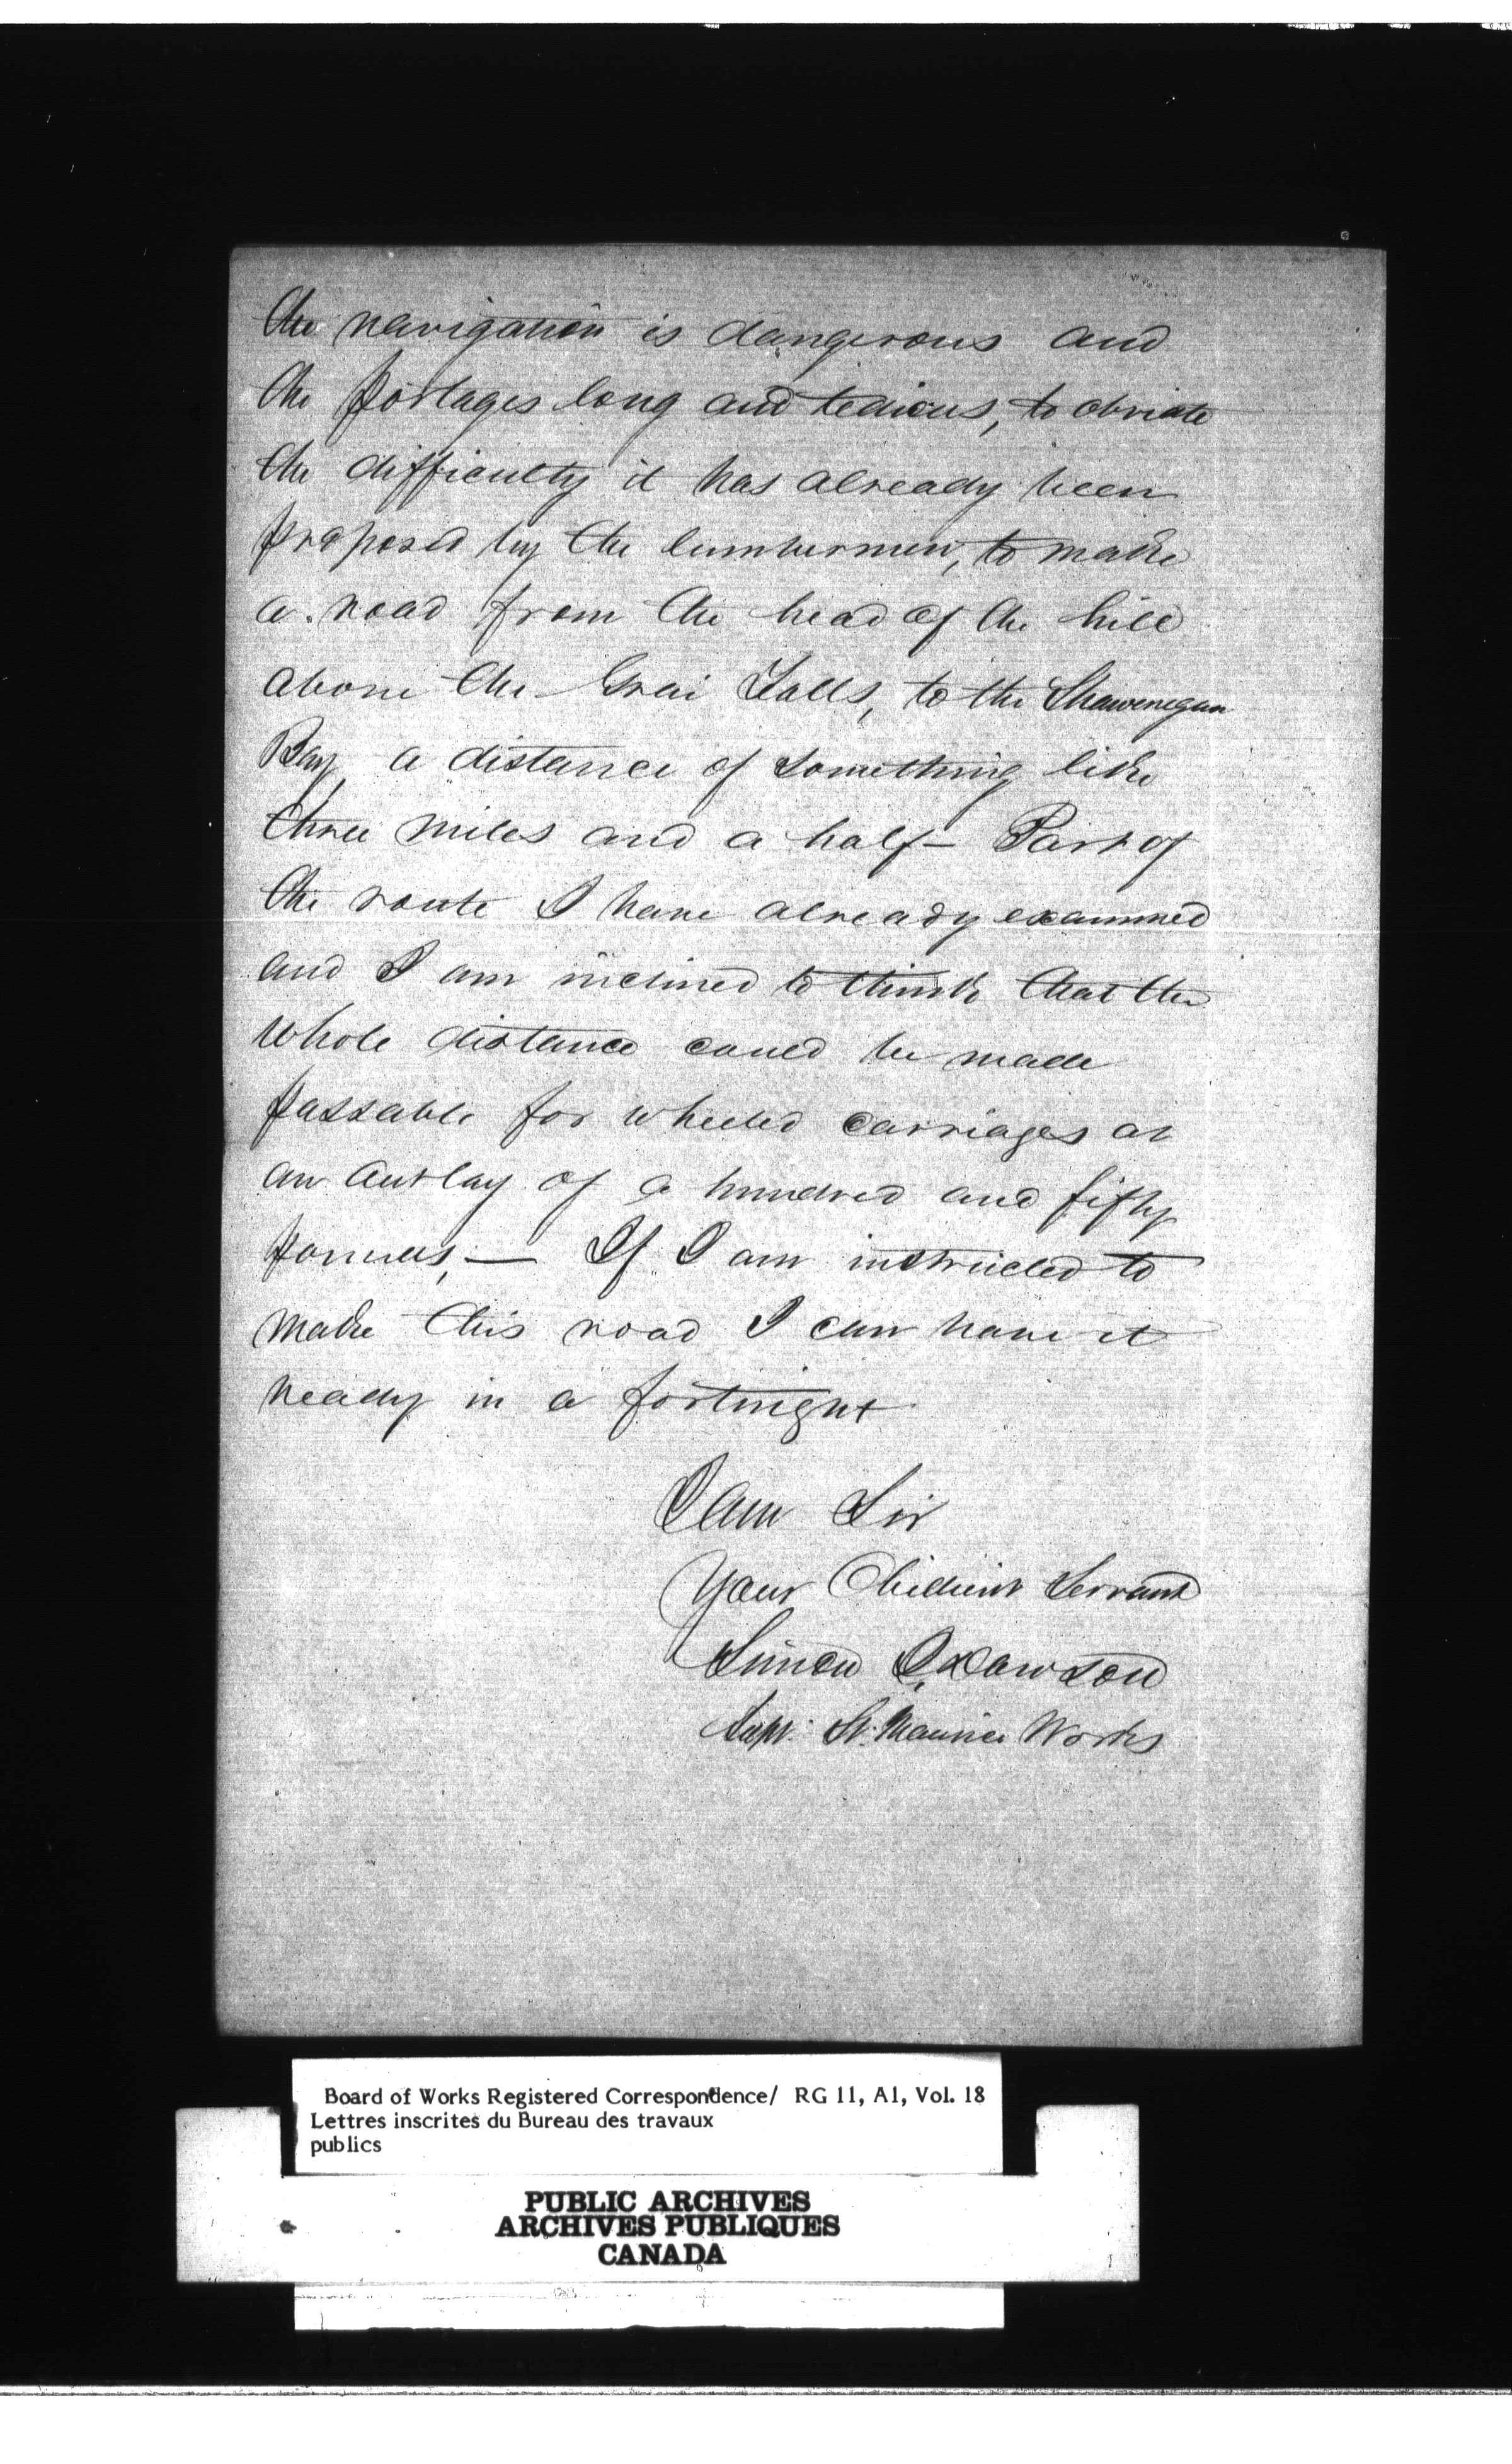 the navigation is dangerous and
the portages long and tedious, to obviate
the difficulty it has already been
proposed by the lumbermen, to make
a road from the head of the hill
above the Grai Falls, to the Shawenegan
Bay, a distance of something like
three miles and a half — Part of
the route I have already examined
and I am inclined to think that the
whole distance could be made
passable for wheeled carriages at
an outlay of a hundred and fifty
pounds, — If I am instructed to
make this road I can have it
ready in a fortnight
I am Sir
Your Obedient Servant
Simon J. Dawson
Supt. St. Maurice Works
Board of Works Registered Correspondence/ RG 11, A1, Vol. 18
Lettres inscrites du Bureau des travaux
publics
PUBLIC ARCHIVES
ARCHIVES PUBLIQUES
CANADA